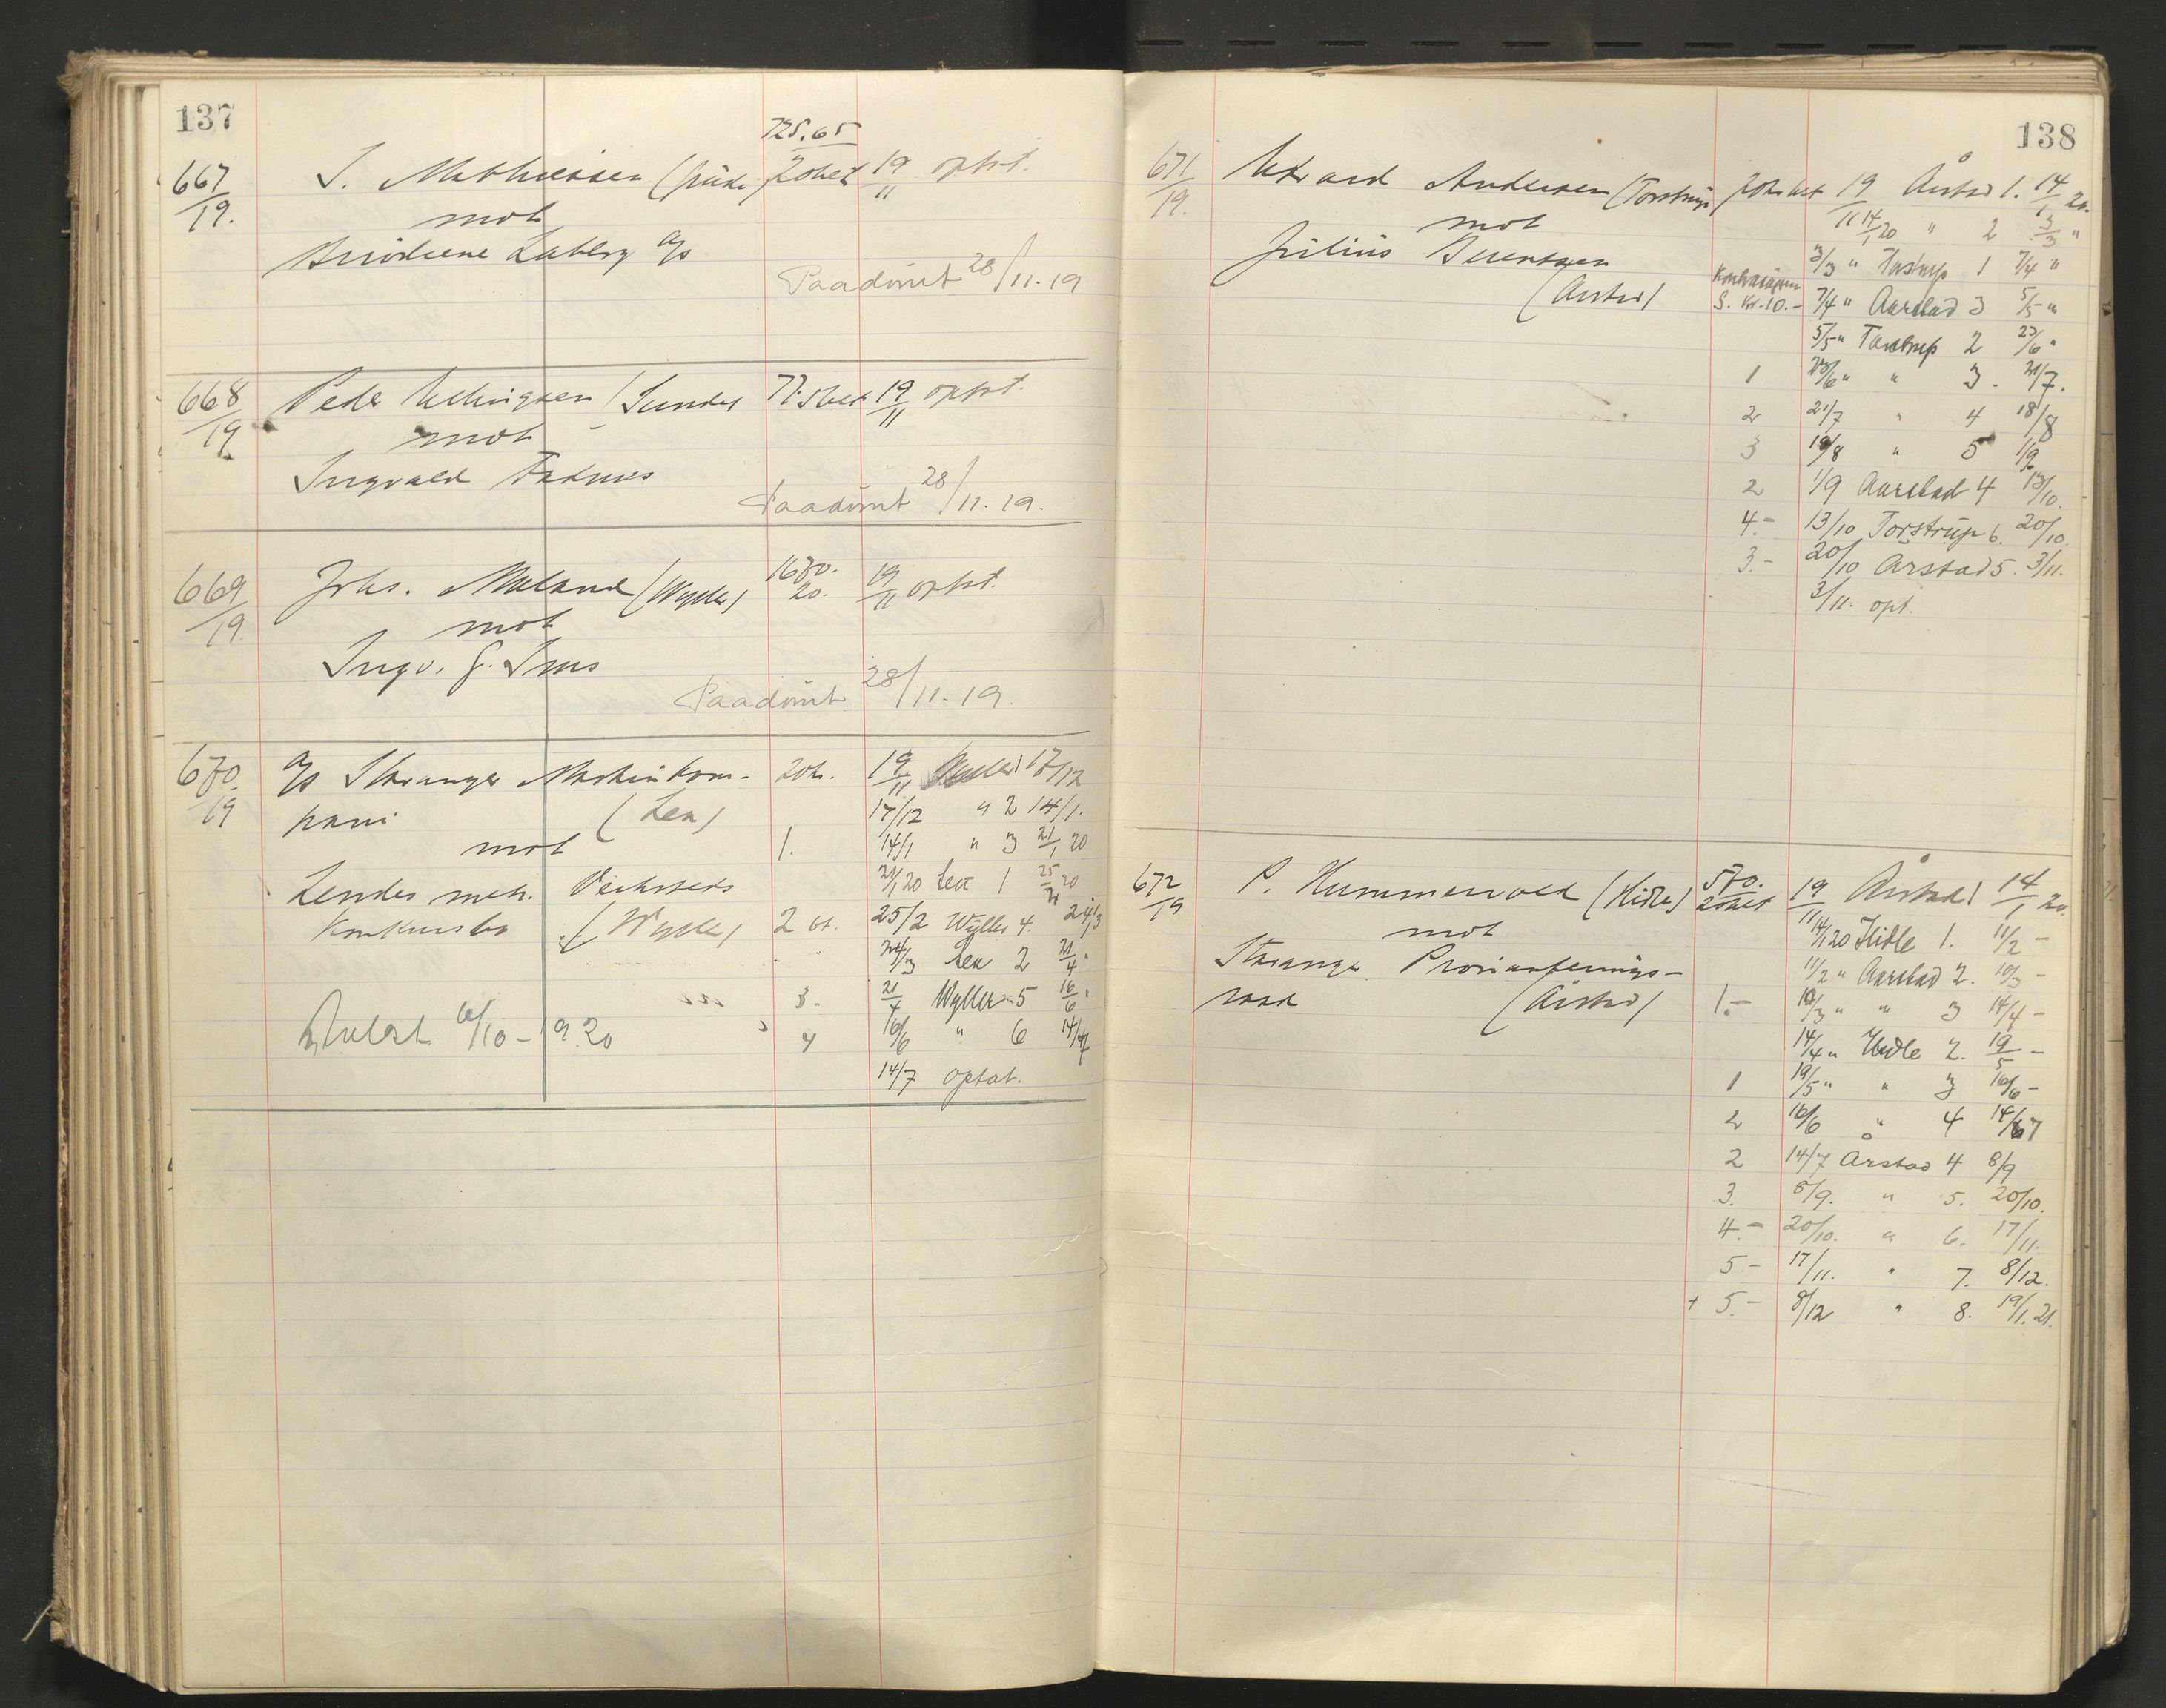 137
725.65
667/19. S. Mathiesen 19/11 optat.
mot
Brødrene Laberg A/S
Paadømt 28/11.19
668/19 Peder Ellingsen (Sundes) 19/11 optat.
mot
Ingvald
Paadømt 28/11.19.
669/19. Johs. Maland (Wyller) 1680.20. 19/11 optat.
mot
Ingv. G. Ims
Paadømt 28/11.19.
670/19 A/S Stavanger Maskinkom- 20 kr. 19/11 Wyller 1 17/12
pani (Lea) 17/12 " 2 14/1.
mot 1. 14/1 " 3 21/1 20
Lendes mek. Verksteds 21/1 20 Lea 1 25/2 20
Konkursbo (Wyller) 2 25/2 Wyller 4. 24/3
24/3 Lea 2 21/4 "
3. 21/4 Wyller 5 16/6 "
Avlest 6/10-19.20 4 16/6 " 6 14/7
14/7 optat.
138
671/19. Edvard Andersen (Torstrup) 19/11 Årstad 1. 14/1 20.
mot 14/1 20 " 2 3/3 "
Julius Berentsen 3/3 " Torstrup 1 7/4 "
(Årstad) S. kr. 10.- 7/4 " Aarstad 3 5/5 "
5/5 " Torstrup 2 23/6 "
1 23/6 " " 3. 21/7.
2 21/7 " 4 18/8
3 18/8 " 5 1/9
2 1/9 Aarstad 4 13/10.
4.- 13/10 Torstrup 6. 20/10.
3.- 20/10 Årstad 5. 3/11.
3/11. opt.
672/19 P. Hummervold (Hidle) 570. 19/11 Årstad 1 14/1 20.
mot 14/1 20 Hidle 1. 11/2 -
Stavanger Provianterings- 11/2 " Aarstad 2. 10/3 -
raad (Årstad) 1.- 10/3 " " 3 14/4 -
14/4 " Hidle 2. 19/5 -
1 19/5 " " 3 16/6 -
2 16/6 " 4 14/7
2 14/7 Årstad 4 8/9
3. 8/9. " 5. 20/10.
4.- 20/10. " 6. 17/11.
5.- 17/11. " 7. 8/12.
+ 5.- 8/12 " 8. 19/1.21.